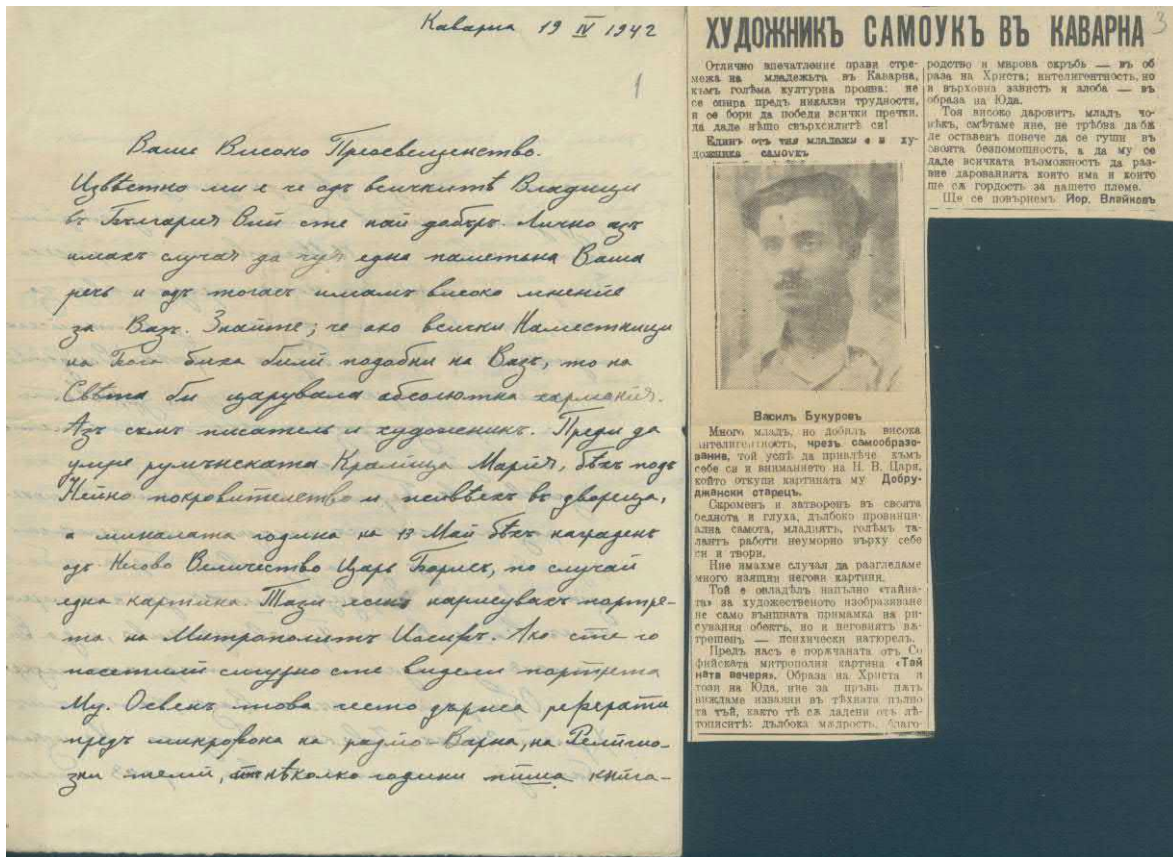 Каварна 19 IV 1942
1
Ваше Високо Преосвещенство.
Извѣстно ми е че одъ всичкитѣ Владици
въ България Вий сте най добъръ. Лично азъ
имахъ случая да чуя една паметьна Ваша
речь и одъ тогасъ имамъ високо мнение
за Вазъ. Знайте; че ако всички Наместници
на Бога биха били подобни на Вазъ, то на
Свѣта би царувала абсолютна хармания.
Азъ съмъ писатель и художникъ. Преди да
умре румънската Кралица Мария, бѣхъ подъ
Нейно покровителство и живѣехъ въ двореца,
а миналата година на 13 Май бѣхъ награденъ
одъ Негово Величество Царь Борисъ, по случай
една картина. Тази есень нарисувахъ портре-
та на Митрополитъ Иосифъ. Ако сте го
посетили сигурно сте видели портрета
Му. Освенъ това често държа реферати
предъ микрофона на радио-Варна, на Религио-
зни теми, нѣколко години пиша книга-
3
ХУДОЖНИКЪ САМОУКЪ ВЪ КАВАРНА
Отлично впечатление прави стре-
межа на младежьта въ Каварна,
къмъ голѣма културна проява: не
се спира предъ никакви трудности,
и се бори да победи всички пречки,
да даде нѣщо свръхсилитѣ си!
Единъ отъ тия младежи е и ху-
дожника самоукъ
Василъ Букуровъ
Много младъ, но добилъ висока
интелигентность, чрезъ самообразо-
вание, той успѣ да привлѣче къмъ
себе си и вниманието на Н. В. Царя,
който откупи картината му Добру-
джански старецъ.
Скроменъ и затворенъ въ своята
беднота и глуха, дълбоко провинци-
ална самота, младиятъ, голѣмъ та-
лантъ работи неуморно върху себе
си и твори.
Ние имахме случая да разгледаме
много изящни негови картини.
Той е овладѣлъ напълно «тайна-
та» за художественото изобразяване
не само външната примамка на ри-
сувания обектъ, но и неговиятъ въ-
трешенъ — психически натюрелъ.
Предъ насъ е поръчаната отъ Со
фийската митрополия картина «Тай
ната вечеря». Образа на Христа и
този на Юда, ние за пръвъ пѫть
виждаме изваяни въ тѣхната пълно
та тъй, както тѣ сѫ дадени отъ лѣ-
тописитѣ: дълбока мѫдрость, благо-
родство и мирова скръбь — въ об
раза на Христа; интелигентность, но
и върховна зависть и злоба — въ
образа на Юда.
Тоя високо даровитъ младъ чо-
вѣкъ, смѣтаме ние, не трѣбва да бѫ
де оставенъ повече да се гуши въ
своята безпомощность, а да му се
даде всичката възможность да раз-
вие дарованията които има и които
ще сѫ гордость за нашето племе.
Ще се повърнемъ Йор. Влайковъ